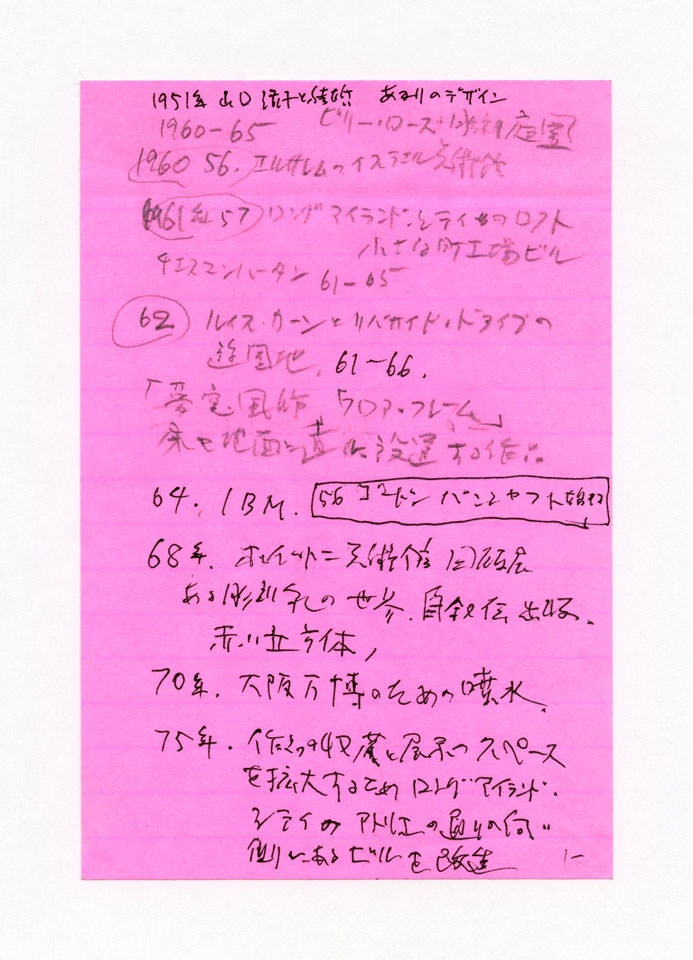 1951年 山口 淑子と結婚 あかりのデザイン
1960-65 ビリー・ローズ 彫刻庭園
1960 56. エルサレムのイスラエル美術館
1961年 57 ロングアイランド・シティの ロフト
小さな町工場ビル
チェスマンハータン 61-65
62 ルイス・カーンとリバサイド・ドライブの
遊園地. 61~66.
フロア・フレーム」
床や地面に直に設置する作品
64. IBM. 56 ゴードン バンシャフト
68年. ホイットニー美術館 回顧展
ある彫刻家の世界. 自叙伝出版.
赤い立方体,
70年. 大阪万博のための噴水.
75年. 作品の収蔵と展示のスペース
を拡大するため ロングアイランド.
シティの アトリエの通りの向い
側にあるビルを改造